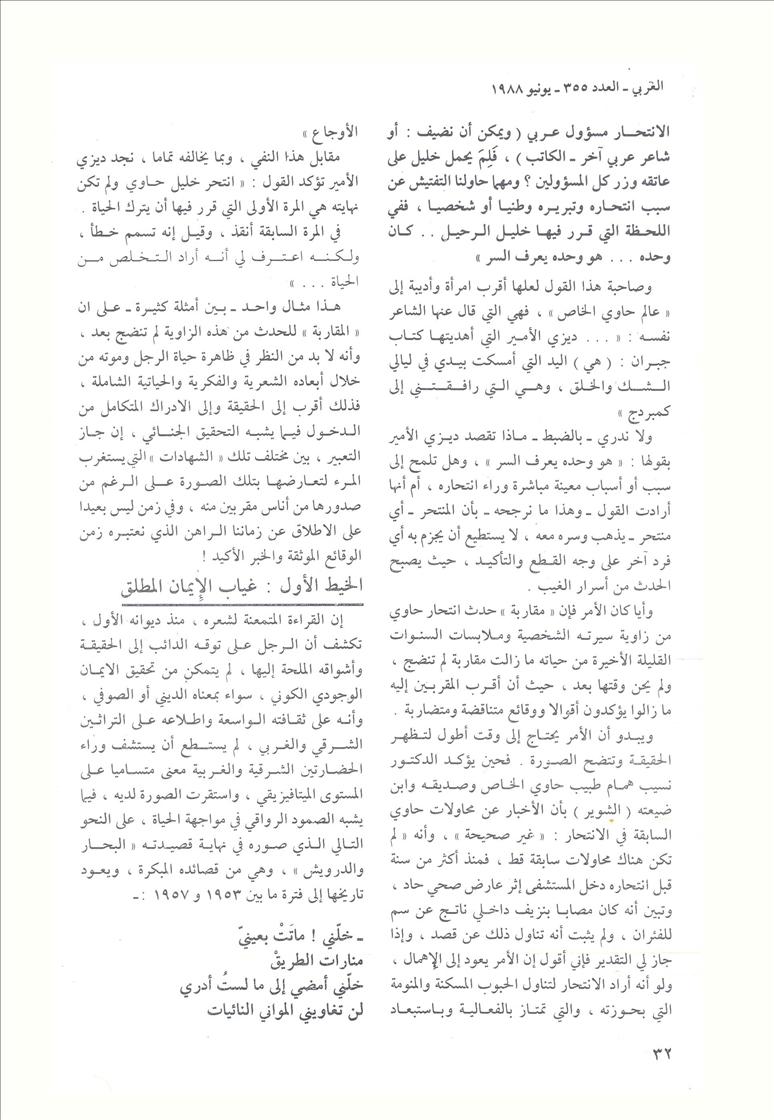 العربي ـ العدد ٣٥٥ ـ يونيو ١٩٨٨
الانتحـار مسؤول عـربي ( ويمكن أن نضيف : أو
شاعر عربي آخر ـ الكاتب ) ، فَلِمَ يحمل خليل على
عاتقه وزر كل المسؤولين ؟ ومهما حاولنا التفتيش عن
سبب انتحاره وتبريره وطنيا أو شخصيا ، ففي
اللحظة التي قرر فيها خليل الرحيل . . كـان
وحده . . . هو وحده يعرف السر »
وصاحبة هذا القول لعلها أقرب امرأة وأديبة إلى
« عالم حاوي الخاص » ، فهي التي قال عنها الشاعر
نفسـه : « . . . ديزي الأمير التي أهديتها كتاب
جبران : ( هي ) اليد التي أمسكت بيدي في ليالي
الشـك والخلق ، وهـي التي رافقـتـني إلى
كمبردج »
ولا ندري ـ بالضبط ـ ماذا تقصد ديزي الأمير
بقولها : « هو وحده يعرف السر » ، وهل تلمح إلى
سبب أو أسباب معينة مباشرة وراء انتحاره ، أم أنها
أرادت القول ـ وهذا ما نرجحه ـ بأن المنتحر ـ أي
منتحر ـ يذهب وسره معه ، لا يستطيع أن يجزم به أي
فرد آخر على وجه القطع والتأكيد ، حيث يصبح
الحدث من أسرار الغيب .
وأيا كان الأمر فإن « مقاربة » حدث انتحار حاوي
من زاوية سيرته الشخصية وملابسات السنوات
القليلة الأخيرة من حياته ما زالت مقاربة لم تنضج ،
ولم يحن وقتها بعد ، حيث أن أقرب المقربين إليه
ما زالوا يؤكدون أقوالا ووقائع متناقضة ومتضاربة .
ويبدو أن الأمر يحتاج إلى وقت أطول لتظهر
الحقيقة وتتضح الصورة . فحين يؤكد الدكتور
نسيب همام طبيب حاوي الخاص وصديقه وابن
ضيعته ( الشوير ) بأن الأخبار عن محاولات حاوي
السابقة في الانتحار : « غير صحيحة » ، وأنه « لم
تكن هناك محاولات سابقة قط ، فمنذ أكثر من سنة
قبل انتحاره دخل المستشفى إثر عارض صحي حاد ،
وتبين أنه كان مصابا بنزيف داخلي ناتج عن سم
للفئران ، ولم يثبت أنه تناول ذلك عن قصد ، وإذا
جاز لي التقدير فإني أقول إن الأمر يعود إلى الإهمال ،
ولو أنه أراد الانتحار لتناول الحبوب المسكنة والمنومة
التي بحوزته ، والتي تمتاز بالفعالية وباستبعاد
الأوجاع »
مقابل هذا النفي ، وبما يخالفه تماما ، نجد ديزي
الأمير تؤكد القول : « انتحر خليل حاوي ولم تكن
نهايته هي المرة الأولى التي قرر فيها أن يترك الحياة .
في المرة السابقة أنقذ ، وقيل إنه تسمم خطأ ،
ولكنه اعترف لي أنه أراد التخلص من
الحياة . . . »
هذا مثال واحد ـ بين أمثلة كثيرة ـ على ان
« المقاربة » للحدث من هذه الزاوية لم تنضج بعد ،
وأنه لا بد من النظر في ظاهرة حياة الرجل وموته من
خلال أبعاده الشعرية والفكرية والحياتية الشاملة ،
فذلك أقرب إلى الحقيقة وإلى الادراك المتكامل من
الدخول فيما يشبه التحقيق الجنائي ، إن جاز
التعبير ، بين مختلف تلك « الشهادات » التي يستغرب
المرء لتعارضها بتلك الصورة على الرغم من
صدورها من أناس مقربين منه ، وفي زمن ليس بعيدا
على الاطلاق عن زماننا الراهن الذي نعتبره زمن
الوقائع الموثقة والخبر الأكيد !
الخيط الأول : غياب الإيمان المطلق
إن القراءة المتمعنة لشعره ، منذ ديوانه الأول ،
تكشف أن الرجل على توقه الدائب إلى الحقيقة
وأشواقه الملحة إليها ، لم يتمكن من تحقيق الايمان
الوجودي الكوني ، سواء بمعناه الديني أو الصوفي ،
وأنه على ثقافته الواسعة واطلاعه على التراثين
الشرقي والغربي ، لم يستطع أن يستشف وراء
الحضارتين الشرقية والغربية معنى متساميا على
المستوى الميتافيزيقي ، واستقرت الصورة لديه ، فيما
يشبه الصمود الرواقي في مواجهة الحياة ، على النحو
التالي الذي صوره في نهاية قصيدته « البحار
والدرويش » ، وهي من قصائده المبكرة ، ويعود
تاريخها إلى فترة ما بين ١٩٥٣ و ١٩٥٧ :ـ
ـ خلّني ! ماتَتْ بعينيّ
منارات الطريقْ
خلّني أمضي إلى ما لستُ أدري
لن تغاويني المواني النائيات
٣٢